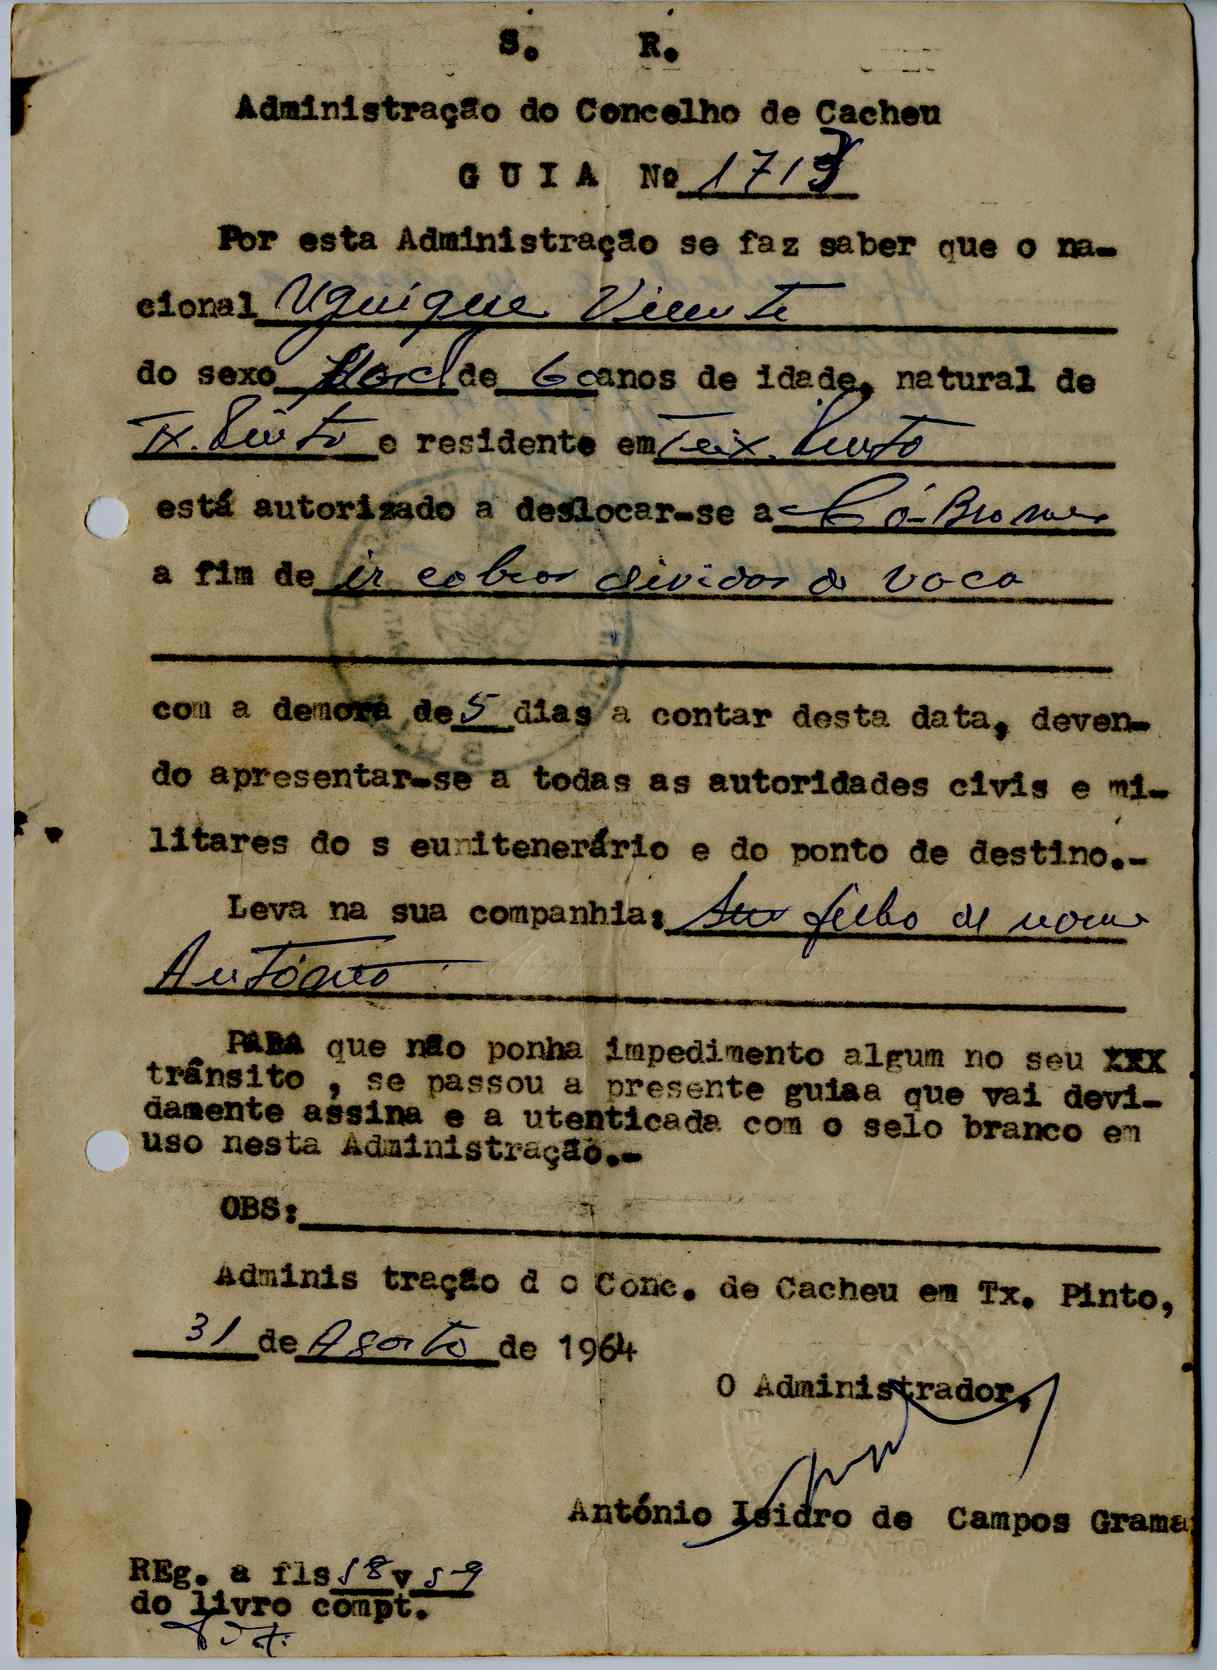 S. R.
Administração do Concelho de Cacheu
G U I A Nº 1713
Por esta Administração se faz saber que o na-
cional Uguigue Vicente
do sexo Masc de 60 anos de idade, natural de
Tx. Pinto e residente em Teix. Pinto
está autorizado a deslocar-se a Có-Bronne
a fim de ir cobrar dividas de vaca
com a demora de 5 dias a contar desta data, deven-
do apresentar-se a todas as autoridades civis e mi-
litares do s eu itenerário e do ponto de destino.-
Leva na sua companhia: Seu filho de nome
António
PARA que não ponha impedimento algum no seu XXX
trânsito , se passou a presente guiaa que vai devi-
damente assina e a utenticada com o selo branco em
uso nesta Administração.-
OBS:
Adminis tração d o Conc. de Cacheu em Tx. Pinto,
31 de Agosto de 1964
O Administrador,
António Isidro de Campos Grama
REg. a fls 58 v 59
do livro compt.